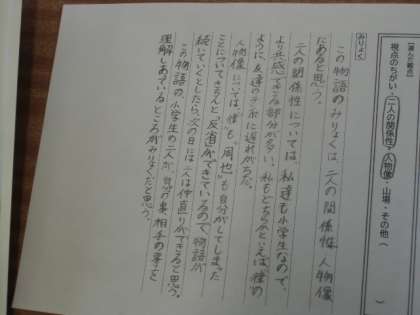 【選んだ観点】
視点のちがい・二人の関係性・人物像・山場・その他（　　）
みりょく
この物語のみりょくは、二人の関係性、人物像
だあると思う。
二人の関係性については、私達も小学生なので、
より共感できる部分が多い。私もどちらかといえば律の
ように友達のテンポに遅れがちだ。
人物像については「律」も「周也」も自分がしてしまった
ことについてきちんと反省ができているので、物語が
続いていくとしたら、次の日には二人は仲直りができると思う。
この物語の小学生の二人が、自分の事、相手の事を
理解しあっているところがみりょくだと思う。